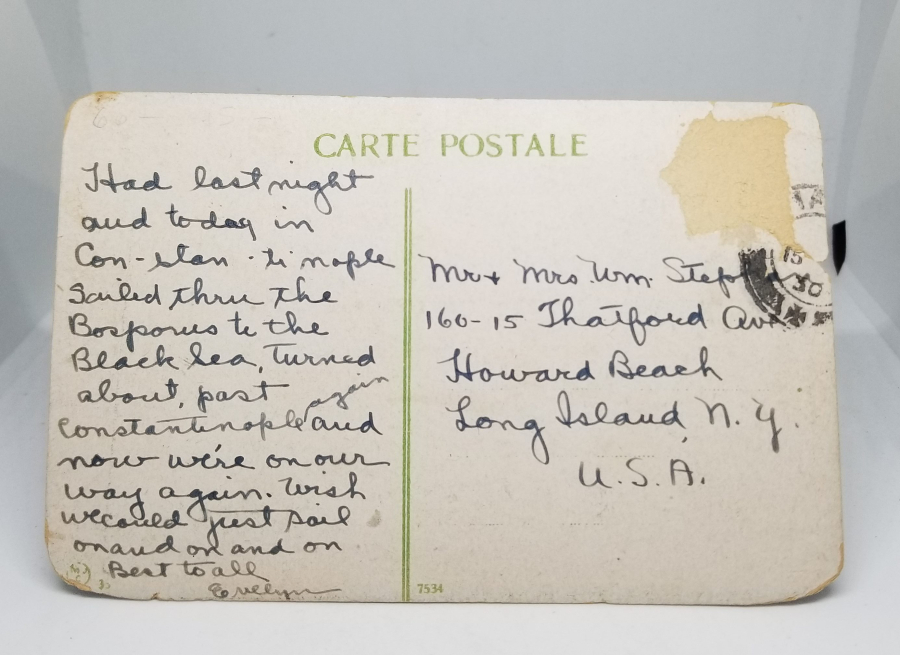 CARTE POSTALE
Had last night
and today in
Con-stan-ti nople
Sailed thru the
Bosporus to the
Black Sea, turned
about, past again
Constantinople and
now we're on our
way again. Wish
we could just sail
on and on and on
Best to all
Evelyn
Mr + Mrs Wm.
160-15 Thatford Ave
Howard Beach
Long Island, N.Y.
U.S.A.
15
30
7534